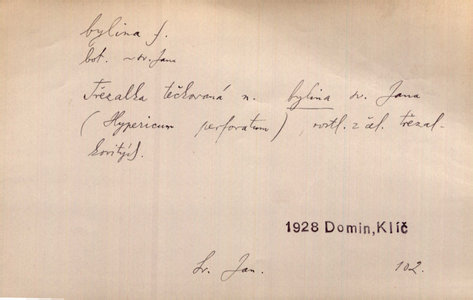 bylina f.
bot. ~ sv. Jana
Třezalka tečkovaná n. bylina sv. Jana
(Hypericum perforatum) rostl. z čel. třezal-
kovitých.
1928 Domin, Klíč
Sv. Jan. 102.